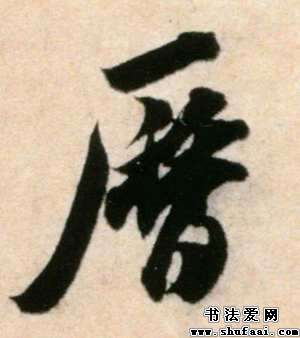 曆
书法爱网
www.shufaai.com